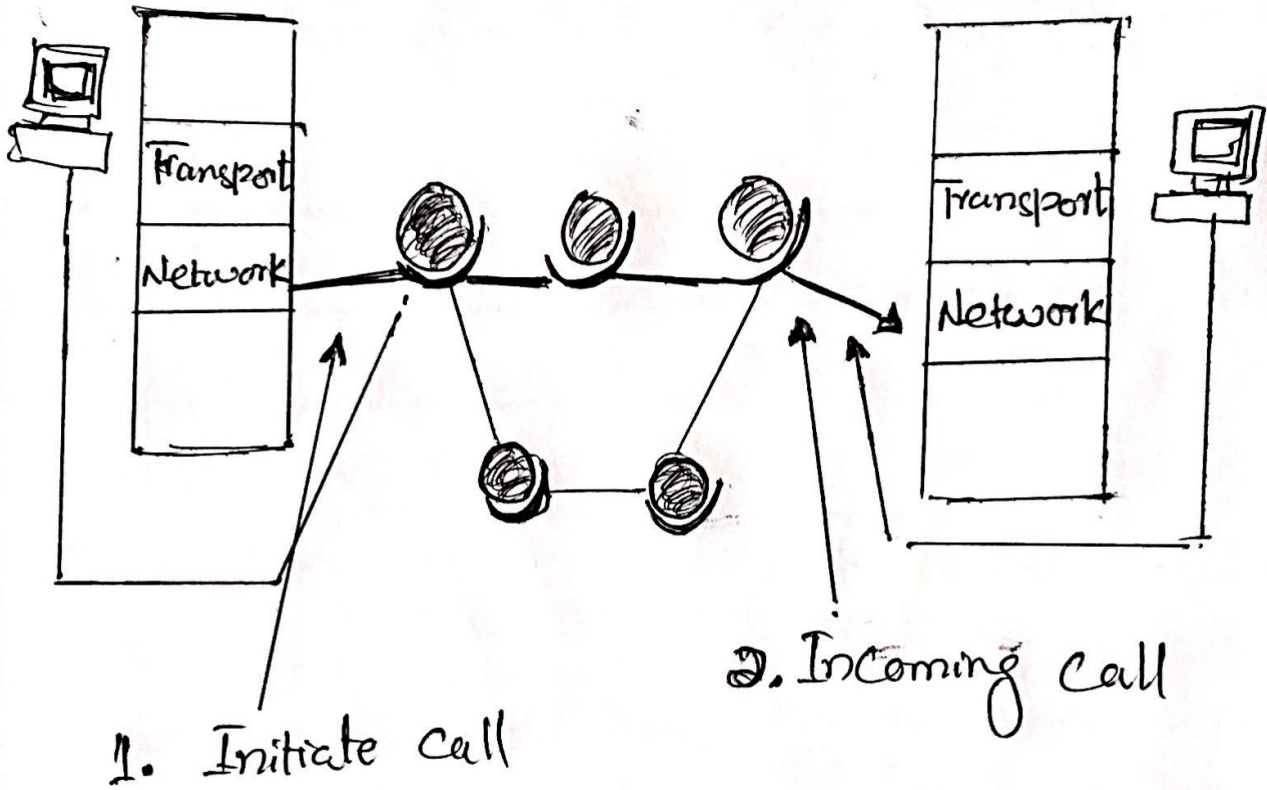 Transport
Network
Transport
Network
2. Incoming call
1. Initiate call